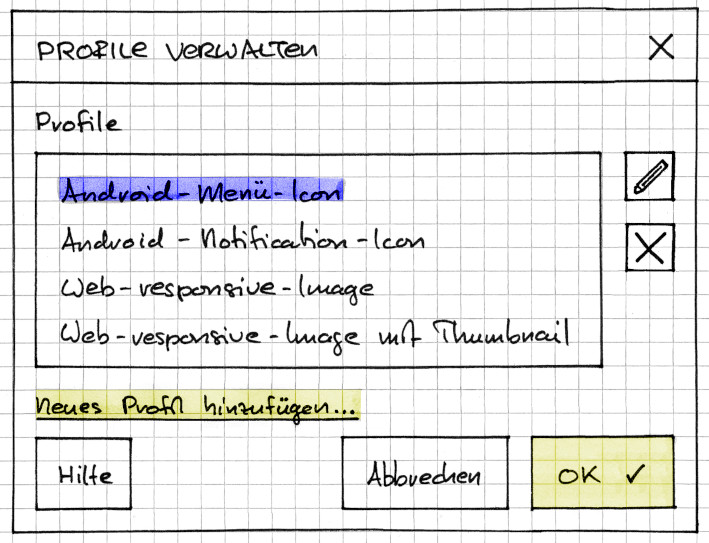 PROFILE VERWALTEN
Profile
Android-Menü-Icon
Android-Notification-Icon
Web-responsive-Image
Web-responsive-Image mit Thumbnail
Neues Profil hinzufügen...
Hilfe
Abbrechen
OK ✓